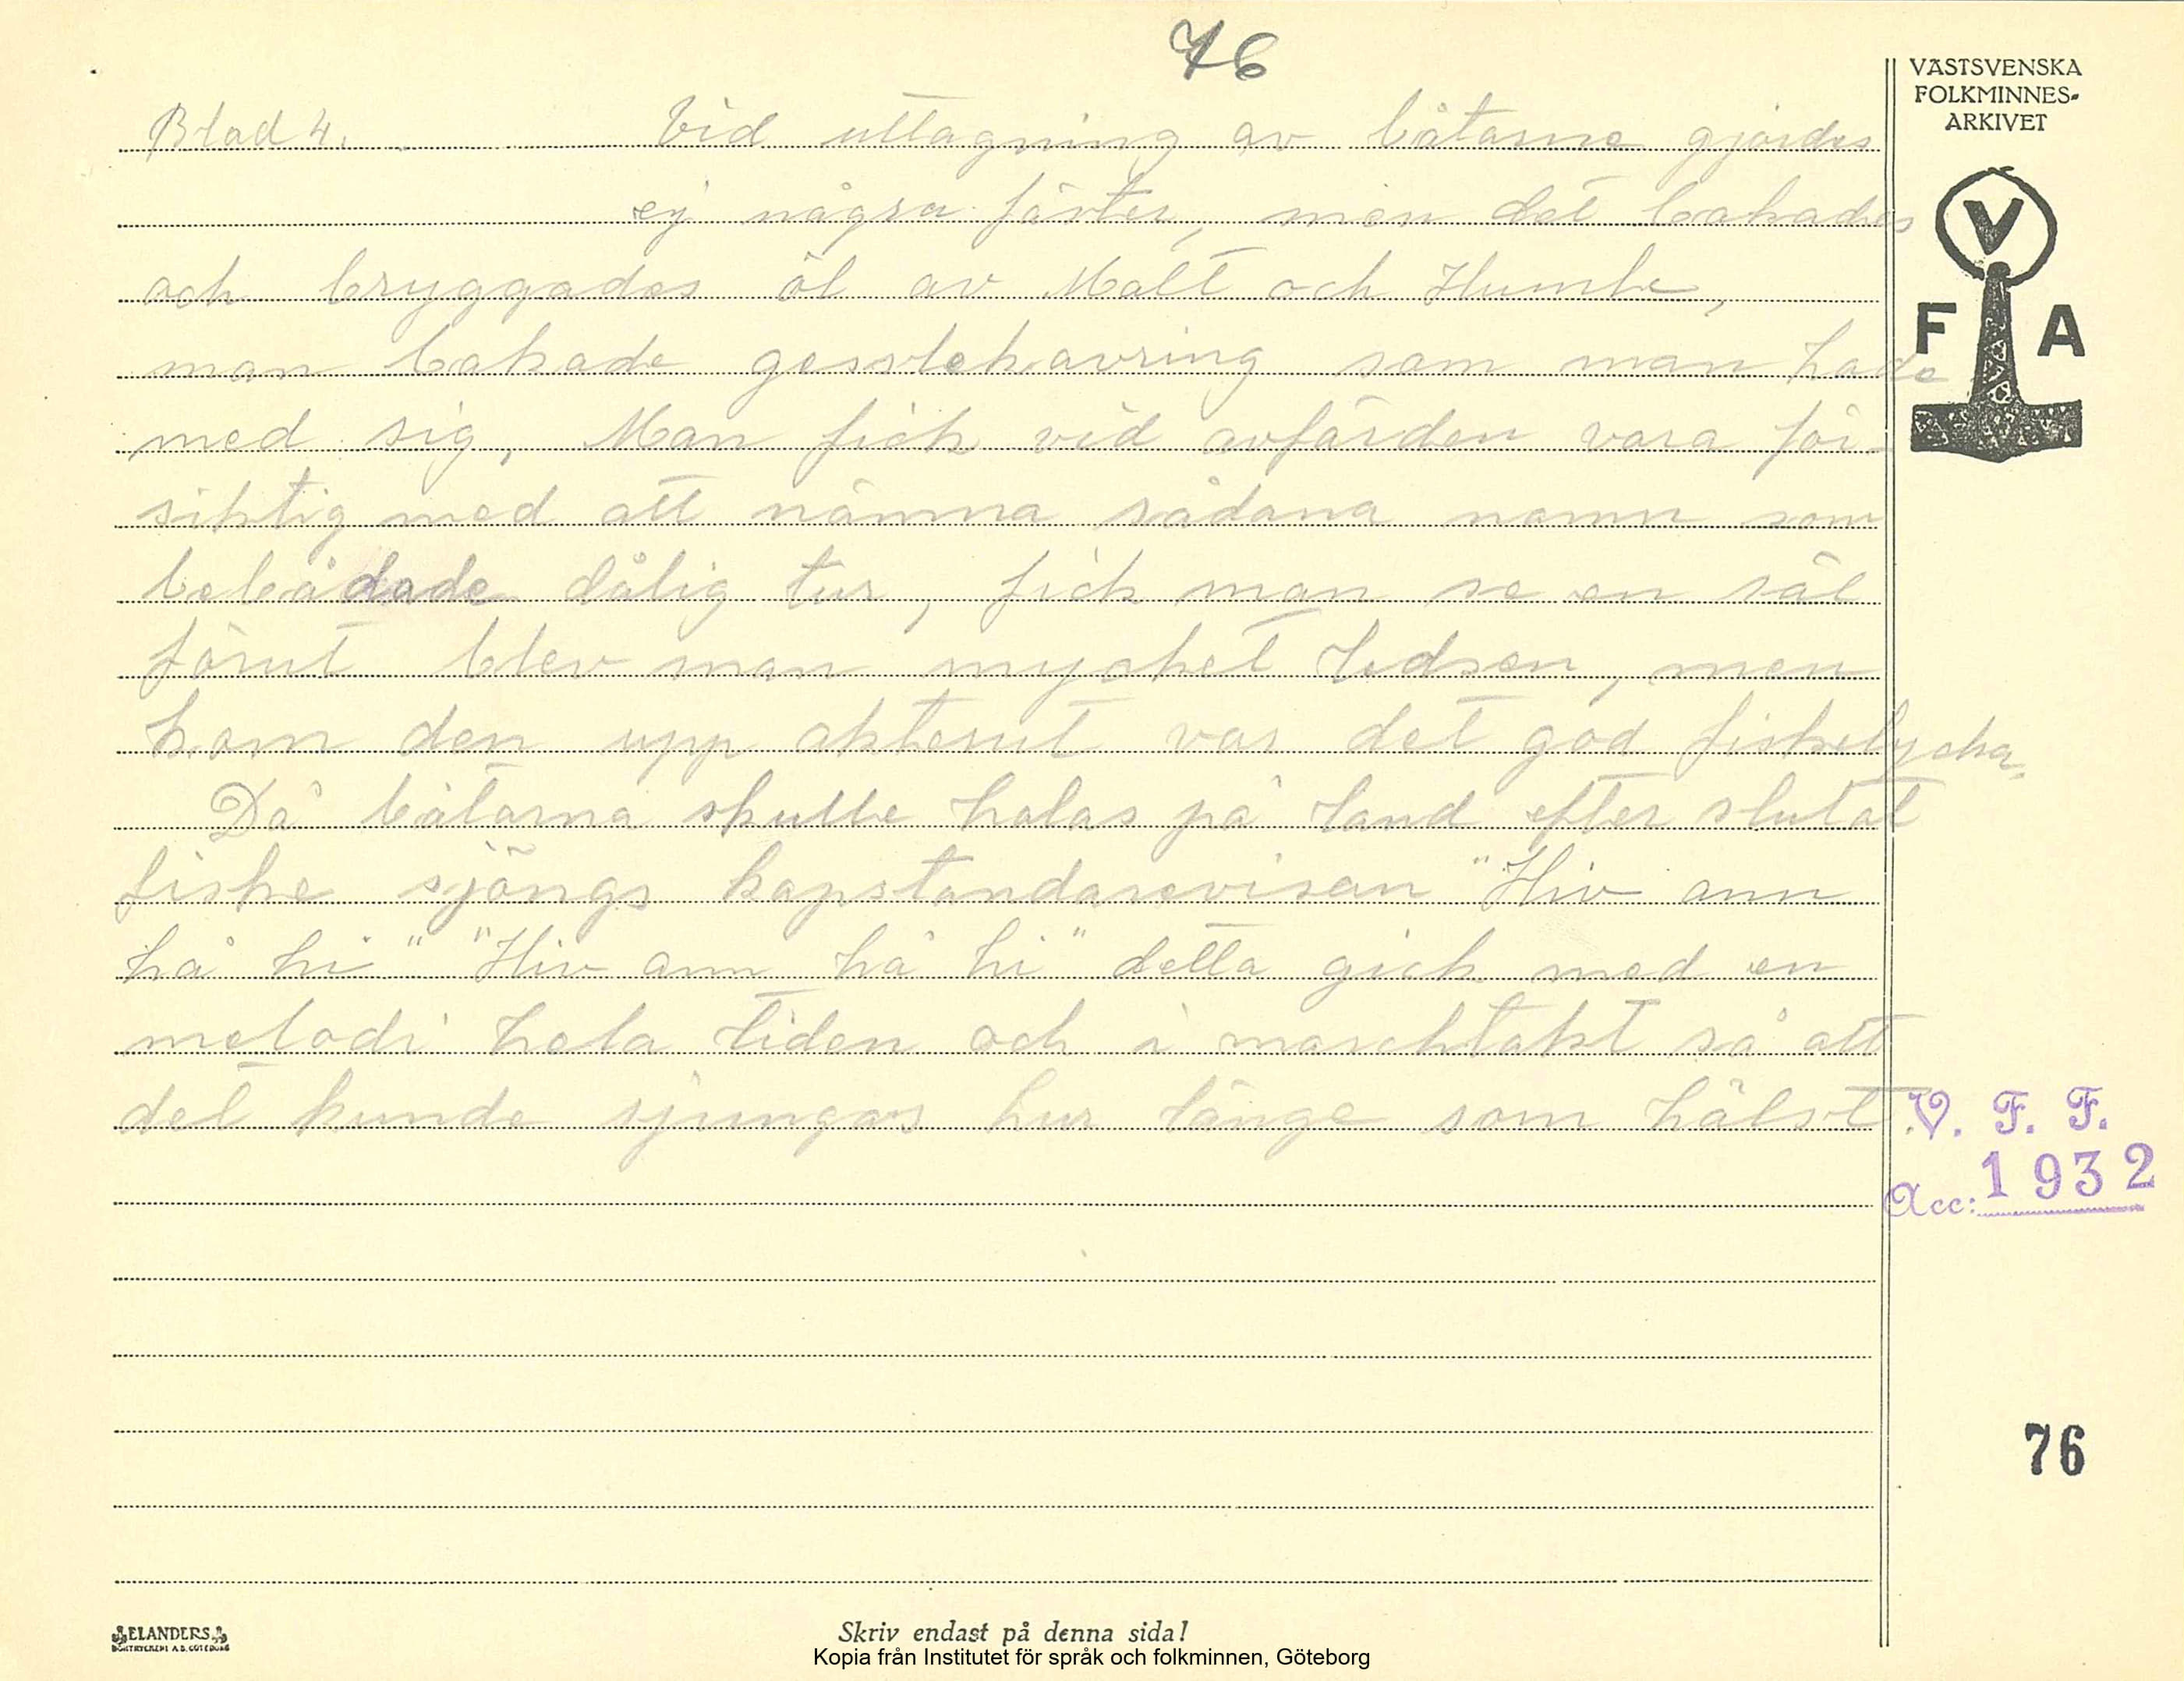 76
VÄSTSVENSKA
FOLKMINNES-
ARKIVET
V
F A
Blad 4. Vid uttagning av båtarne gjordes
ej några fäster, men det bakades
och bryggades öl av Malt och Humle,
man bakade gesslekavring som man hade
med sig, Man fick vid avfärden vara för-
siktig med att nämna sådana namn som
bebådade dålig tur, fick man se en säl
förut blev man mycket ledsen, men
kom den upp akterut var det god fiskelycka.
Då båtarna skulle halas på land efter slutat
fiske sjöngs kapstandarevisan "Hiv ann
hå hi" "Hiv ann hå hi" detta gick med en
melodi hela tiden och i marchtakt så att
det kunde sjungas hur länge som hälst.
V. F. F.
Acc: 1932
76
ELANDERS
BOKTRYCKERI A.B. GÖTEBORG
Skriv endast på denna sida!
Kopia från Institutet för språk och folkminnen, Göteborg